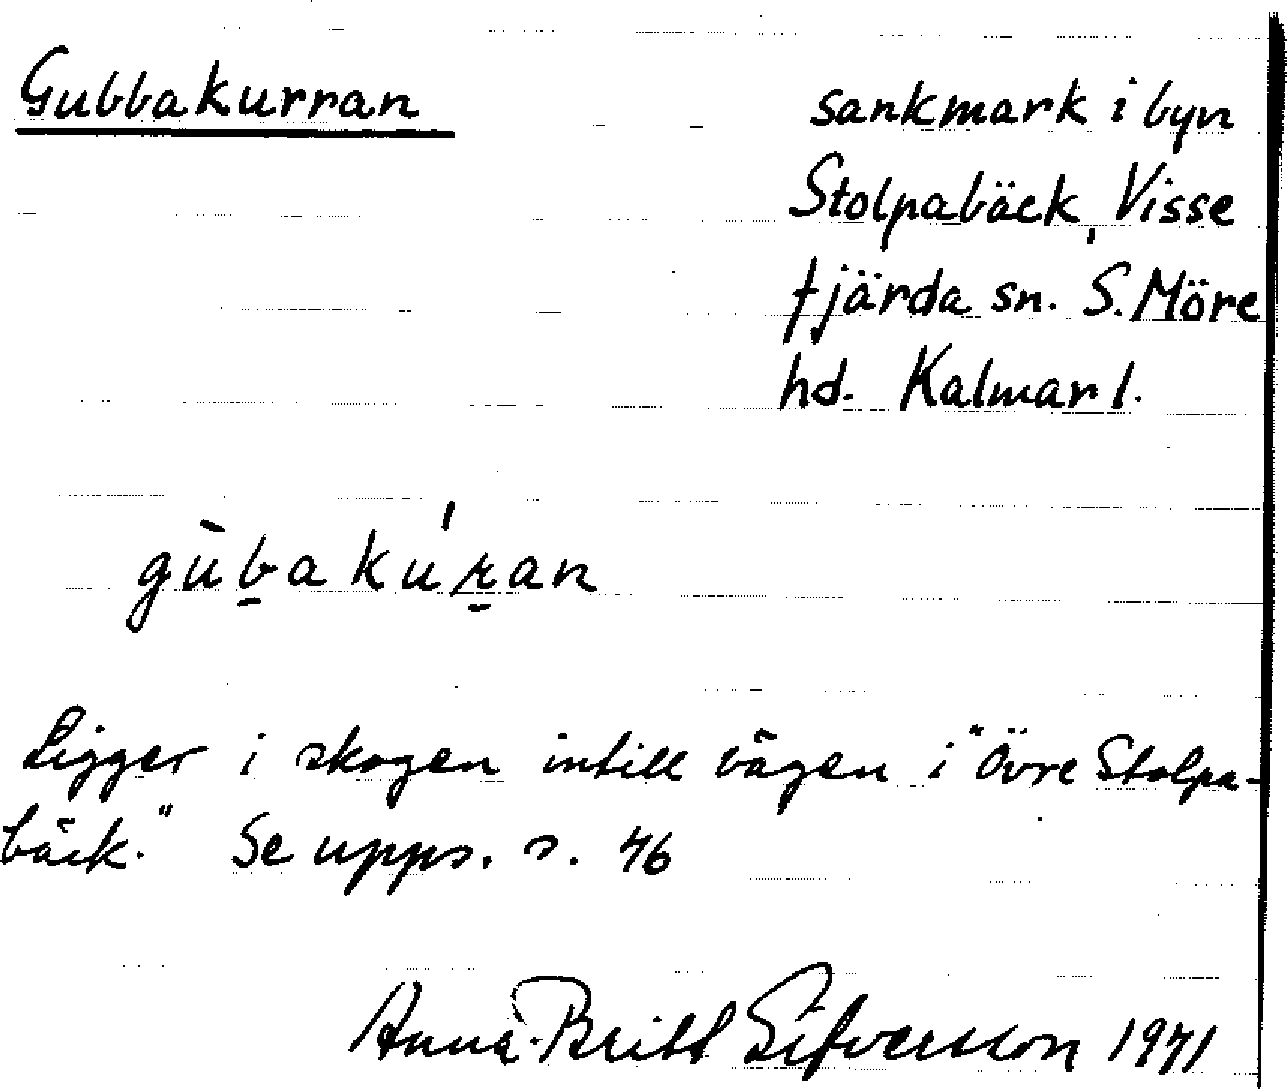 Gubbakurran
sankmark i byn
Stolpabäck, Visse
fjärda sn. S. Möre
hd. Kalmar l.
gu̇̀ḇakúṟan
Ligger i skogen intill vägen i "Övre Stolpa-
bäck." Se upps. s. 46
Anna-Britt Sifversson 1971